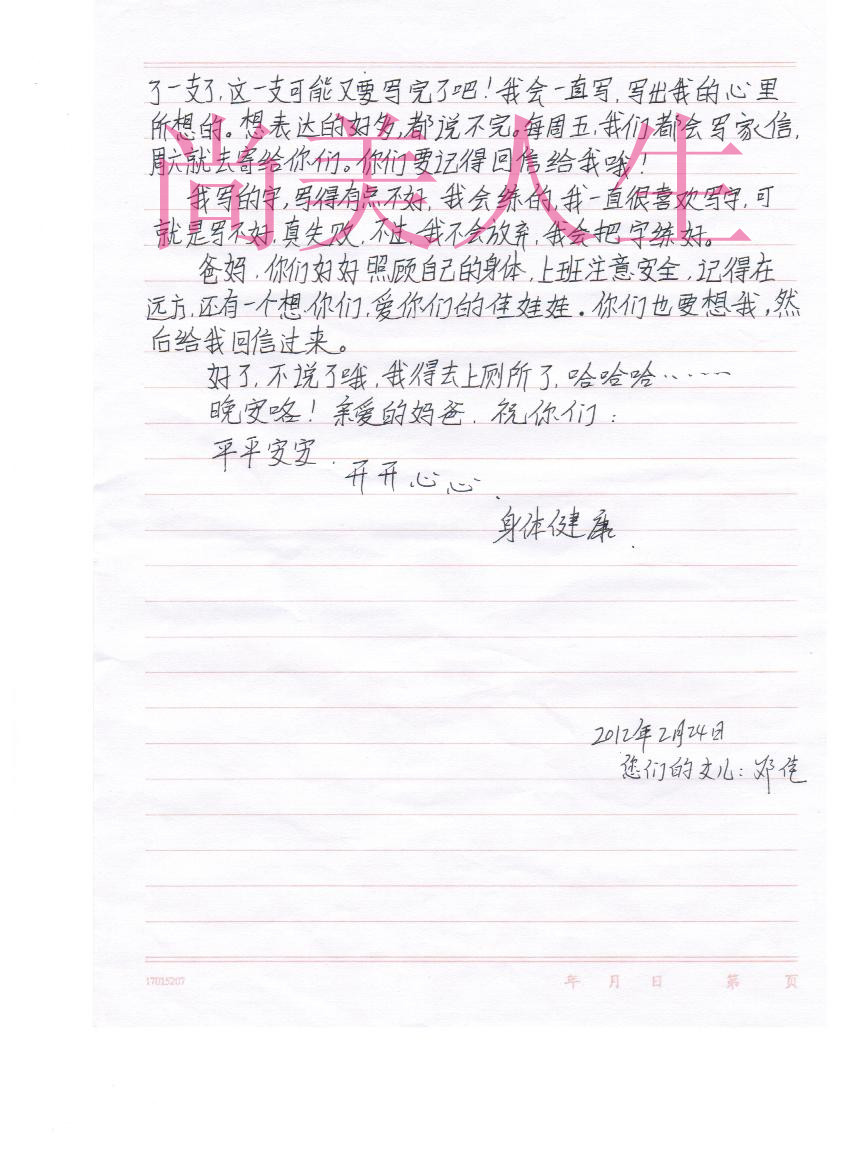 了一支了,这一支可能又要写完了吧!我会一直写,写出我的心里
所想的。想表达的好多,都说不完。每周五,我们都会写家信,
周六就去寄给你们。你们要记得回信给我哦!
尚美人生
我写的字,写得有点不好,我会练的,我一直很喜欢写字,可
就是写不好,真失败,不过,我不会放弃,我会把字练好。
爸妈,你们好好照顾自己的身体,上班注意安全,记得在
远方,还有一个想你们,爱你们的佳娃娃。你们也要想我,然
后给我回信过来。
好了,不说了哦,我得去上厕所了,哈哈哈……
晚安咯!亲爱的妈爸,祝你们:
平平安安.
开开心心.
身体健康.
2012年2月24日
您们的女儿:邓佳
17015207 年 月 日 第 页